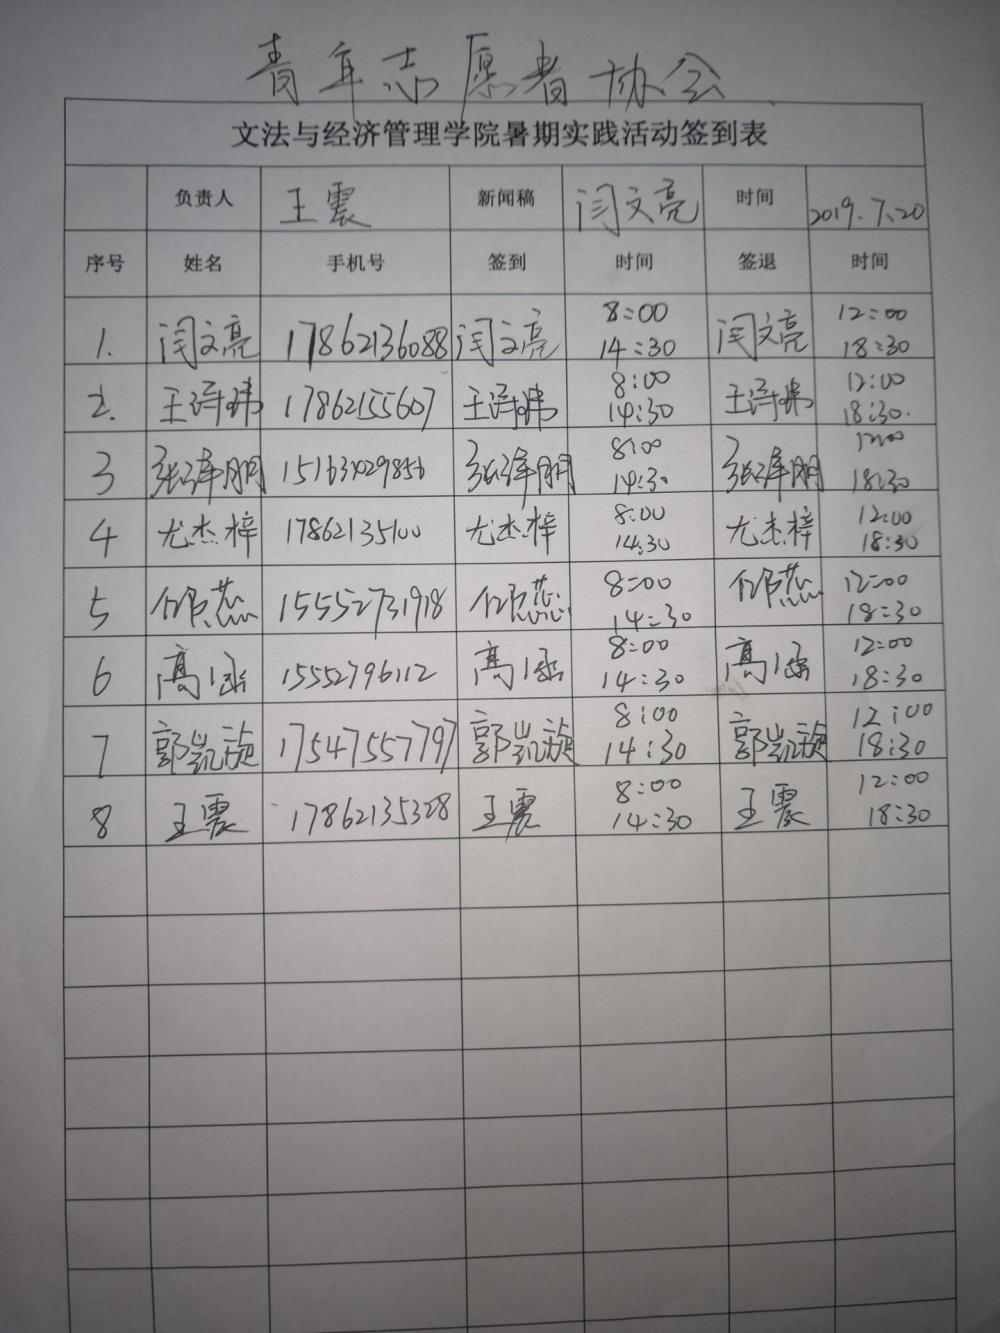 青年志愿者协会
文法与经济管理学院暑期实践活动签到表
负责人 王震 新闻稿 闫文亮 时间 2019.7.20
序号 姓名 手机号 签到 时间 签退 时间
1. 闫文亮 17862136088 闫文亮 8:00 14:30 闫文亮 12:00 18:30
2. 王 17862155607 王 8:00 14:30 王 12:00 18:30.
3 张泽朋 张泽朋 8:00 14:30 张泽朋 12:00 18:30
4 尤杰梓 17862135100 尤杰梓 8:00 14:30 尤杰梓 12:00 18:30
5 15552731918 8:00 14:30 12:00 18:30
6 高涵 15552796112 高涵 8:00 14:30 高涵 12:00 18:30
7 郭凯旋 17547557797 郭凯旋 8:00 14:30 郭凯旋 12:00 18:30
8 王震 17862135328 王震 8:00 14:30 王震 12:00 18:30